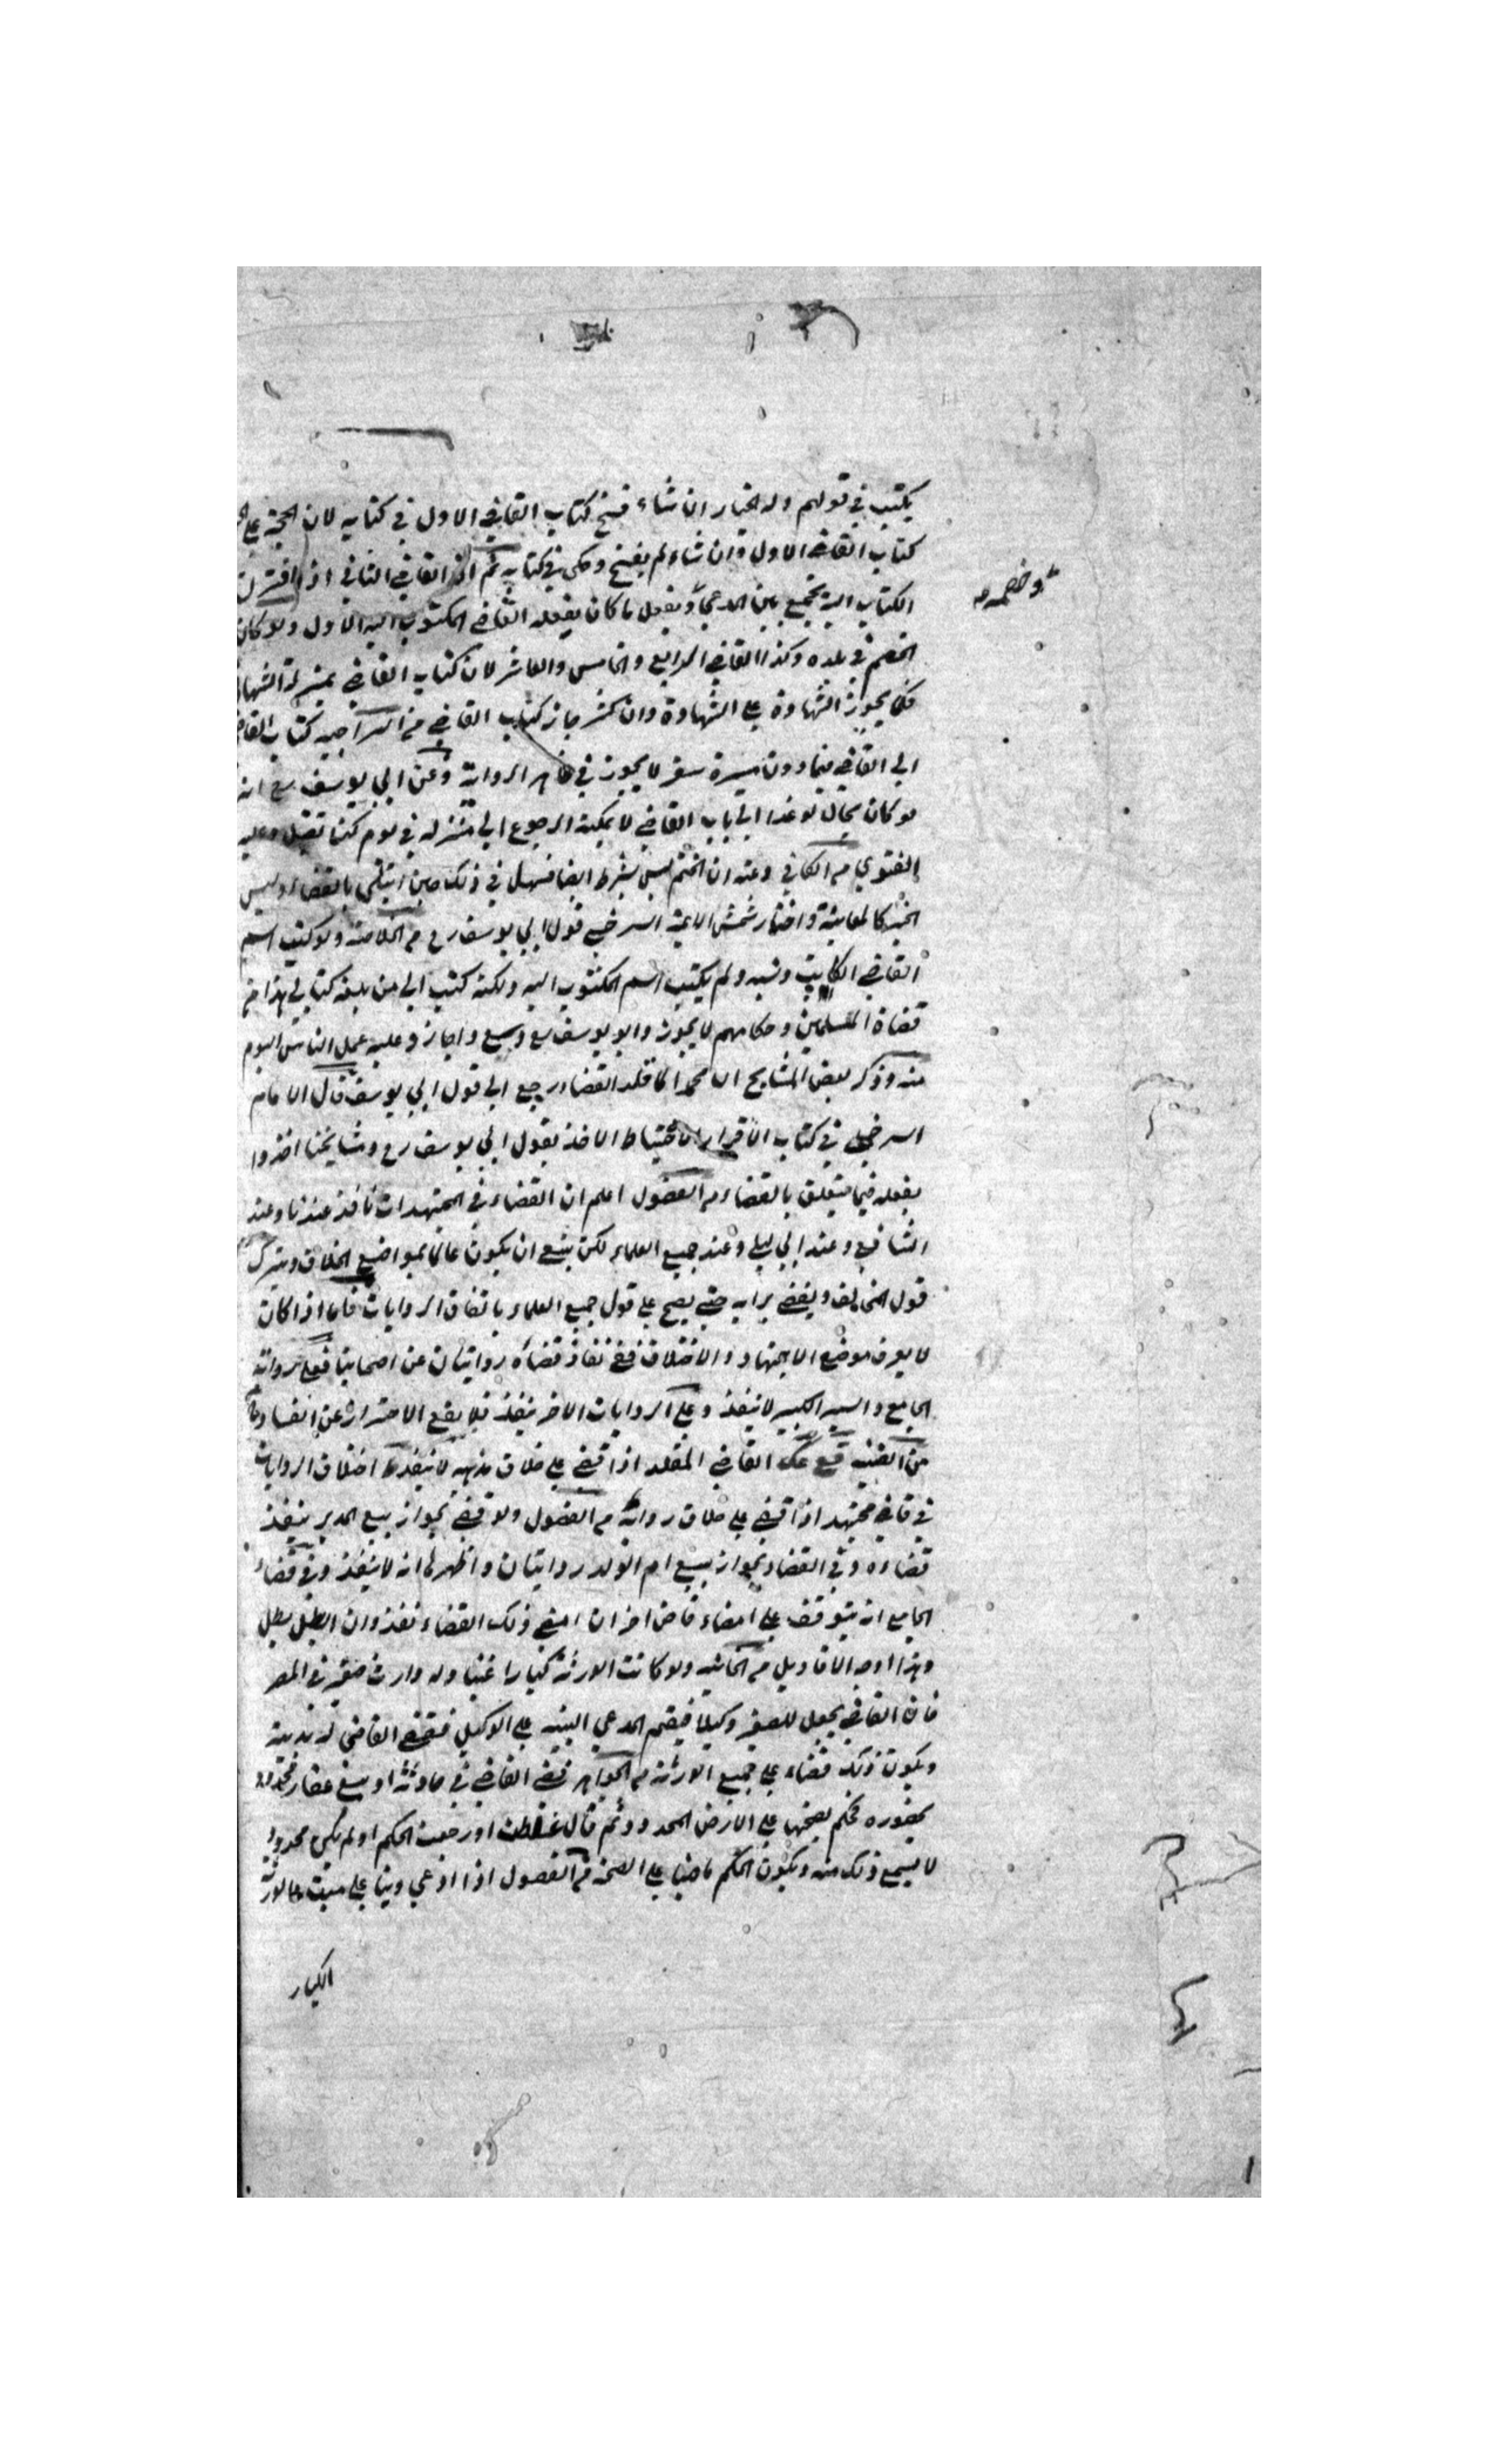 يكتب في قولهم وله الخيار ان شاء نسخ كتاب القاضي الاول في كتابه لان الحجة على
كتاب القاضي الاول وان شاء لم ينسخ وحكى في كتابه ثم القاضي الثاني اذا
وخصمه
الكتاب اليه يجمع بين المدعي ويفعل ما كان يفعله القاضي المكتوب اليه الاول ولو كان
الخصم في بلده وكذا القاضي الرابع والخامس والعاشر لان كتاب القاضي بمنزلة الشهادة
فكما يجوز الشهادة على الشهادة وان كثر جاز كتاب القاضي من السراجيه كتاب القاضي
الى القاضي فيما دون مسيرة سفر لا يجوز في ظاهر الرواية وعن ابي يوسف رح انه
لو كان بحال لو غدا الى باب القاضي لا يمكنه الرجوع الى منزله في يوم كذا تقبل وعليه
الفتوى من الكافي وعنه ان الختم ليس بشرط ايضا فسهل في ذلك حين ابتلي بالقضاء وليس
الخبر كالمعاينة واختار شمس الايمة السرخسي قول ابي يوسف رح من الخلاصة ولو كتب اسم
القاضي الكاتب ونسبه ولم يكتب اسم المكتوب اليه ولكنه كتب الى من بلغه كتابي هذا من
قضاة المسلمين وحكامهم لا يجوز وابو يوسف رح وسع واجاز وعليه عمل الناس اليوم
منه وذكر بعض المشايخ ان محمدا لما قلد القضاء رجع الى قول ابي يوسف قال الامام
السرخسي في كتاب الاقرار الاحتياط الاخذ بقول ابي يوسف رح ومشايخنا اخذوا
بقوله فيما يتعلق بالقضاء من الفصول اعلم ان القضاء في المجتهدات نافذ عندنا وعند
الشافعي وعند ابي ليلى وعند جميع العلماء لكن ينبغي ان يكون عالما بمواضع الخلاف ويترك
قول المخالف ويقضي برايه حتى يصح على قول جميع العلماء باتفاق الروايات فاما اذا كان
لا يعرف موضع الاجتهاد والاختلاف ففي نفاذ قضاه روايتان عن اصحابنا فعلى رواية
الجامع والسير الكبير لا ينفذ وعلى الروايات الاخر ينفذ فلا يقع الاحتراز عن الفساد
من القنيه قع عك القاضي المقلد اذا قضى على خلاف مذهبه لا ينفذ اختلاف الروايات
في قاض مجتهد اذا قضى على خلاف رواية من الفصول ولو قضى بجواز بيع المدبر ينفذ
قضاءه وفي القضاء بجواز بيع ام الولد روايتان واظهرها انه لا ينفذ وفي قضاء
الجامع انه يتوقف على امضاء قاض اخر ان امضى ذلك القضاء نفذ وان ابطل بطل
وهذا اوجه الاقاويل من الخانيه ولو كانت الورثة كبارا غيبا وله وارث صغير في المصر
فان القاضي يجعل للصغير وكيلا فيقيم المدعي البينه على الوكيل فيقضي القاضي له بدينه
ويكون ذلك قضاء على جميع الورثة من الجواهر قضى القاضي في حادثة او بيع عقار محدود
بحضوره فحكم بصحتها على الارض المحدود ثم قال غلطت او رجعت الحكم او لم يكن محدودا
لا يسمع ذلك منه ويكون الحكم ماضيا على الصحة من الفصول اذا ادعى دينا على ميت
الكبار